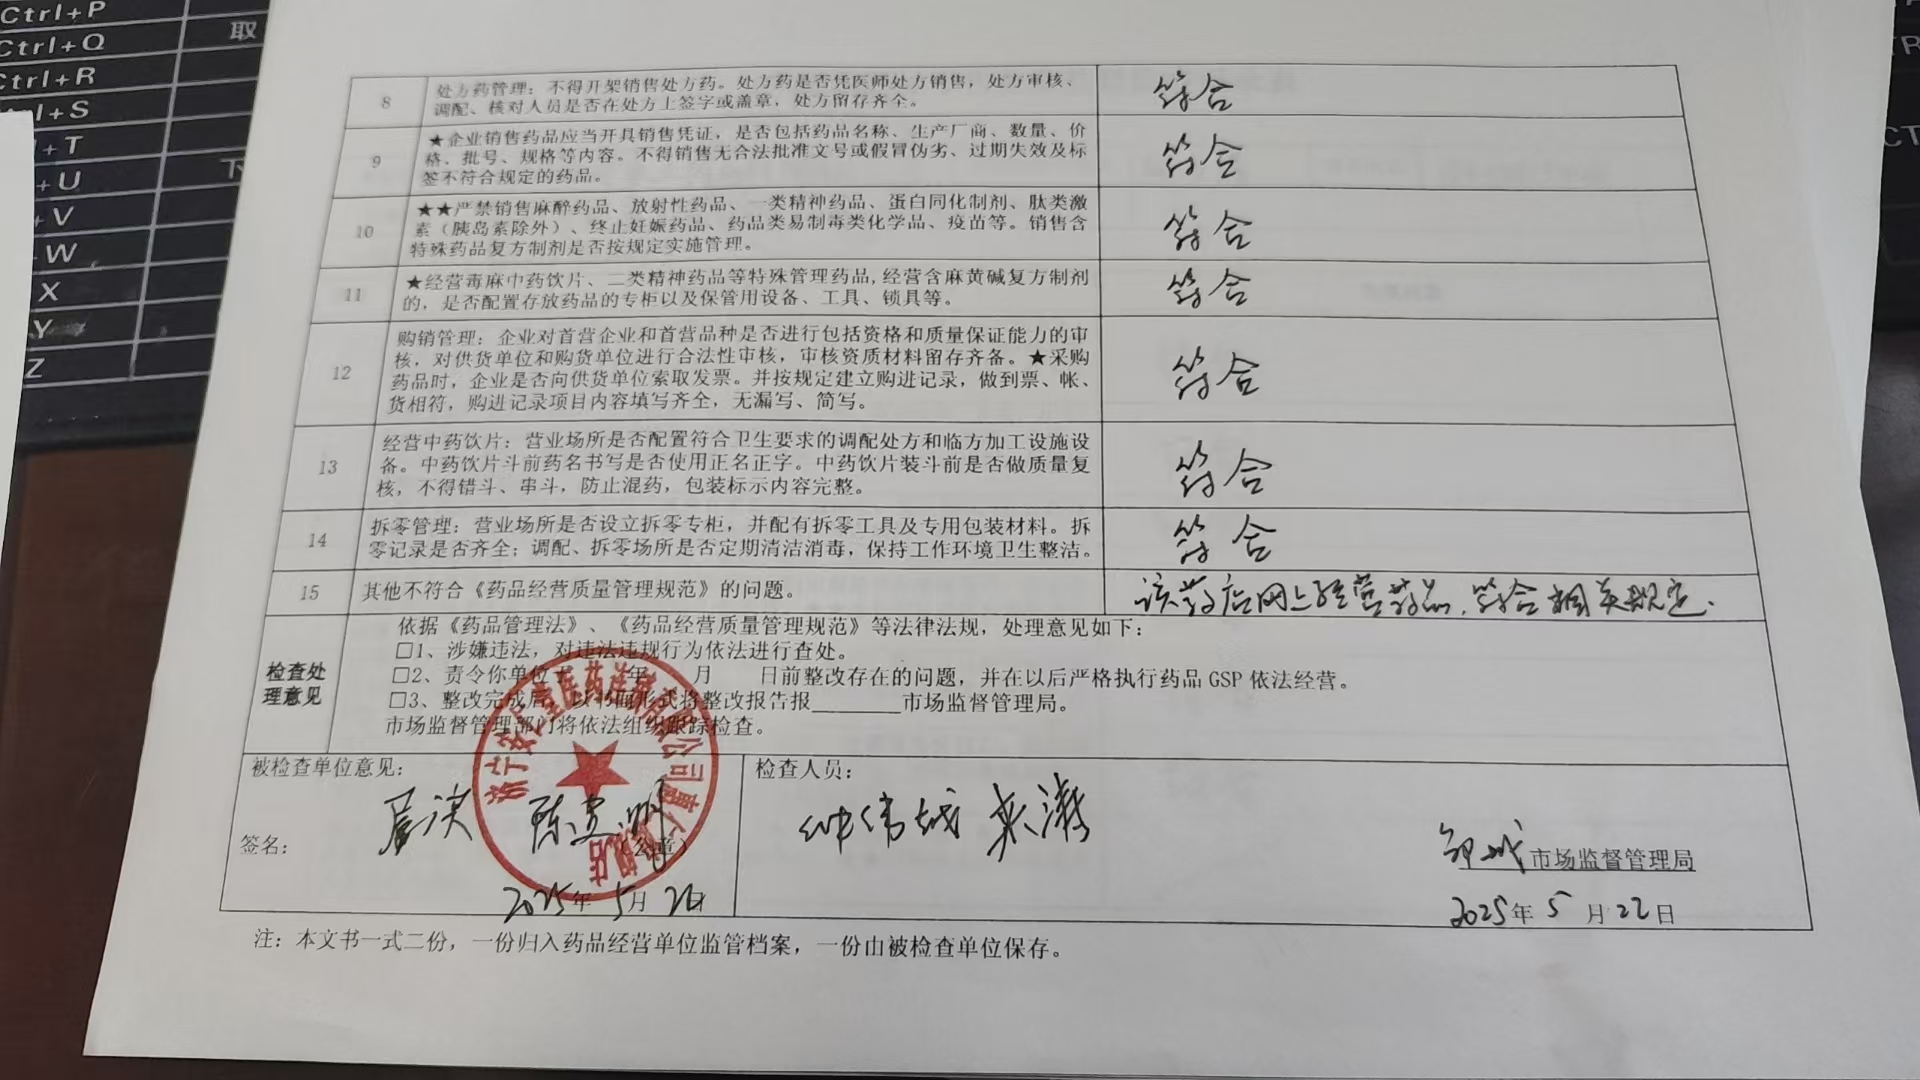 Ctrl+P
Ctrl+Q
取
Ctrl+R
trl+S
l+T
+U
下
+V
+W
X
Y
Z
8
处方药管理：不得开架销售处方药。处方药是否凭医师处方销售，处方审核、
调配、核对人员是否在处方上签字或盖章，处方留存齐全。
符合
9
★企业销售药品应当开具销售凭证，是否包括药品名称、生产厂商、数量、价
格、批号、规格等内容。不得销售无合法批准文号或假冒伪劣、过期失效及标
签不符合规定的药品。
符合
10
★★严禁销售麻醉药品、放射性药品、一类精神药品、蛋白同化制剂、肽类激
素（胰岛素除外）、终止妊娠药品、药品类易制毒类化学品、疫苗等。销售含
特殊药品复方制剂是否按规定实施管理。
符合
11
★经营毒麻中药饮片、二类精神药品等特殊管理药品,经营含麻黄碱复方制剂
的，是否配置存放药品的专柜以及保管用设备、工具、锁具等。
符合
12
购销管理：企业对首营企业和首营品种是否进行包括资格和质量保证能力的审
核，对供货单位和购货单位进行合法性审核，审核资质材料留存齐备。★采购
药品时，企业是否向供货单位索取发票。并按规定建立购进记录，做到票、帐、
货相符，购进记录项目内容填写齐全，无漏写、简写。
符合
13
经营中药饮片：营业场所是否配置符合卫生要求的调配处方和临方加工设施设
备。中药饮片斗前药名书写是否使用正名正字。中药饮片装斗前是否做质量复
核，不得错斗、串斗，防止混药，包装标示内容完整。
符合
14
拆零管理：营业场所是否设立拆零专柜，并配有拆零工具及专用包装材料。拆
零记录是否齐全；调配、拆零场所是否定期清洁消毒，保持工作环境卫生整洁。
符合
15
其他不符合《药品经营质量管理规范》的问题。
该药店网上经营药品，符合相关规定.
检查处
理意见
依据《药品管理法》、《药品经营质量管理规范》等法律法规，处理意见如下：
□1、涉嫌违法，对违法违规行为依法进行查处。
□2、责令你单位于 年 月 日前整改存在的问题，并在以后严格执行药品 GSP 依法经营。
□3、整改完成后，以书面形式将整改报告报________市场监督管理局。
市场监督管理部门将依法组织跟踪检查。
被检查单位意见：
签名：
（公章）
2025年 5月
检查人员：
邹城市场监督管理局
2025年 5 月 22 日
注：本文书一式二份，一份归入药品经营单位监管档案，一份由被检查单位保存。